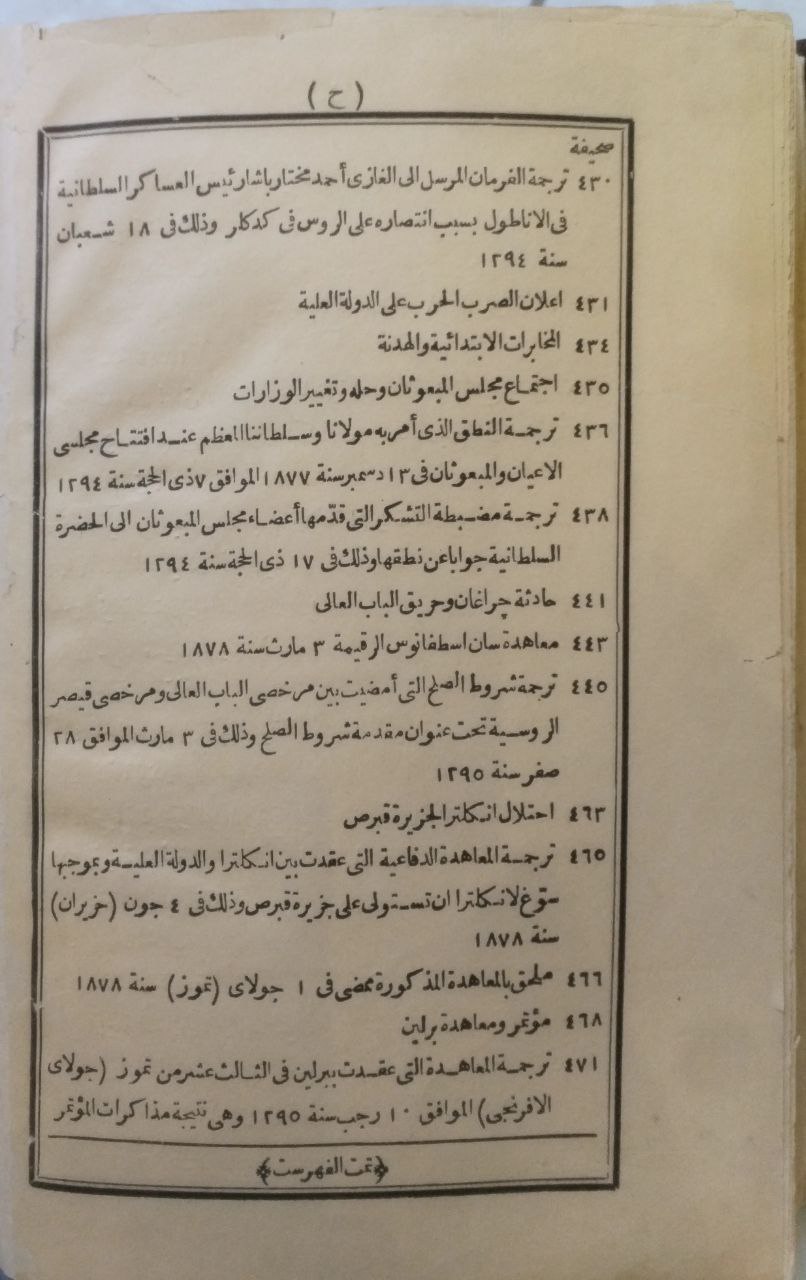 (ح)
صحيفة
٤٣٠ ترجمة الفرمان المرسل الى الغازى أحمد مختار باشا رئيس العساكر السلطانية
فى الاناطول بسبب انتصاره على الروس فى كدكلر وذلك فى ١٨ شعبان
سنة ١٢٩٤
٤٣١ اعلان الصرب الحرب على الدولة العلية
٤٣٤ المخابرات الابتدائية والهدنة
٤٣٥ اجتماع مجلس المبعوثان وحله وتغيير الوزارات
٤٣٦ ترجمة النطق الذى أمر به مولانا وسلطاننا المعظم عند افتتاح مجلسى
الاعيان والمبعوثان فى ١٣ دسمبر سنة ١٨٧٧ الموافق ٧ ذى الحجة سنة ١٢٩٤
٤٣٨ ترجمة مضبطة التشكر التى قدّمها أعضاء مجلس المبعوثان الى الحضرة
السلطانية جوابا عن نطقها وذلك فى ١٧ ذى الحجة سنة ١٢٩٤
٤٤١ حادثة چراغان وحريق الباب العالى
٤٤٣ معاهدة سان اسطفانوس الرقيمة ٣ مارث سنة ١٨٧٨
٤٤٥ ترجمة شروط الصلح التى أمضيت بين مرخصى الباب العالى ومرخصى قيصر
الروسية تحت عنوان مقدمة شروط الصلح وذلك فى ٣ مارث الموافق ٢٨
صفر سنة ١٢٩٥
٤٦٣ احتلال انكلترا لجزيرة قبرص
٤٦٥ ترجمة المعاهدة الدفاعية التى عقدت بين انكلترا والدولة العلية وبموجبها
سوّغ لانكلترا ان تستولى على جزيرة قبرص وذلك فى ٤ جون (حزيران)
سنة ١٨٧٨
٤٦٦ ملحق بالمعاهدة المذكورة ممضى فى ١ جولاى (تموز) سنة ١٨٧٨
٤٦٨ مؤتمر ومعاهدة برلين
٤٧١ ترجمة المعاهدة التى عقدت ببرلين فى الثالث عشر من تموز (جولاى
الافرنجى) الموافق ١٠ رجب سنة ١٢٩٥ وهى نتيجة مذاكرات المؤتمر
﴿تمت الفهرست﴾